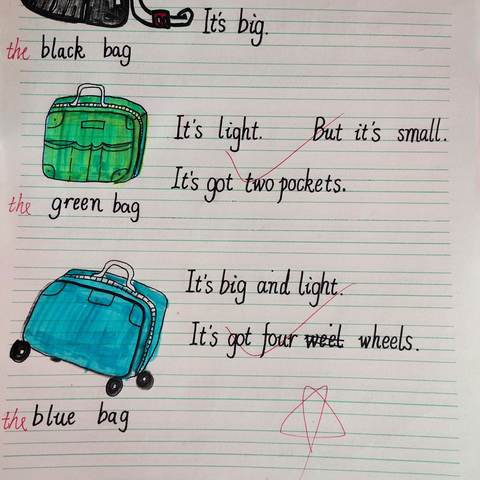 It's big.
the black bag
It's light. But it's small.
It's got two pockets.
the green bag
It's big and light.
It's got four weel wheels.
the blue bag